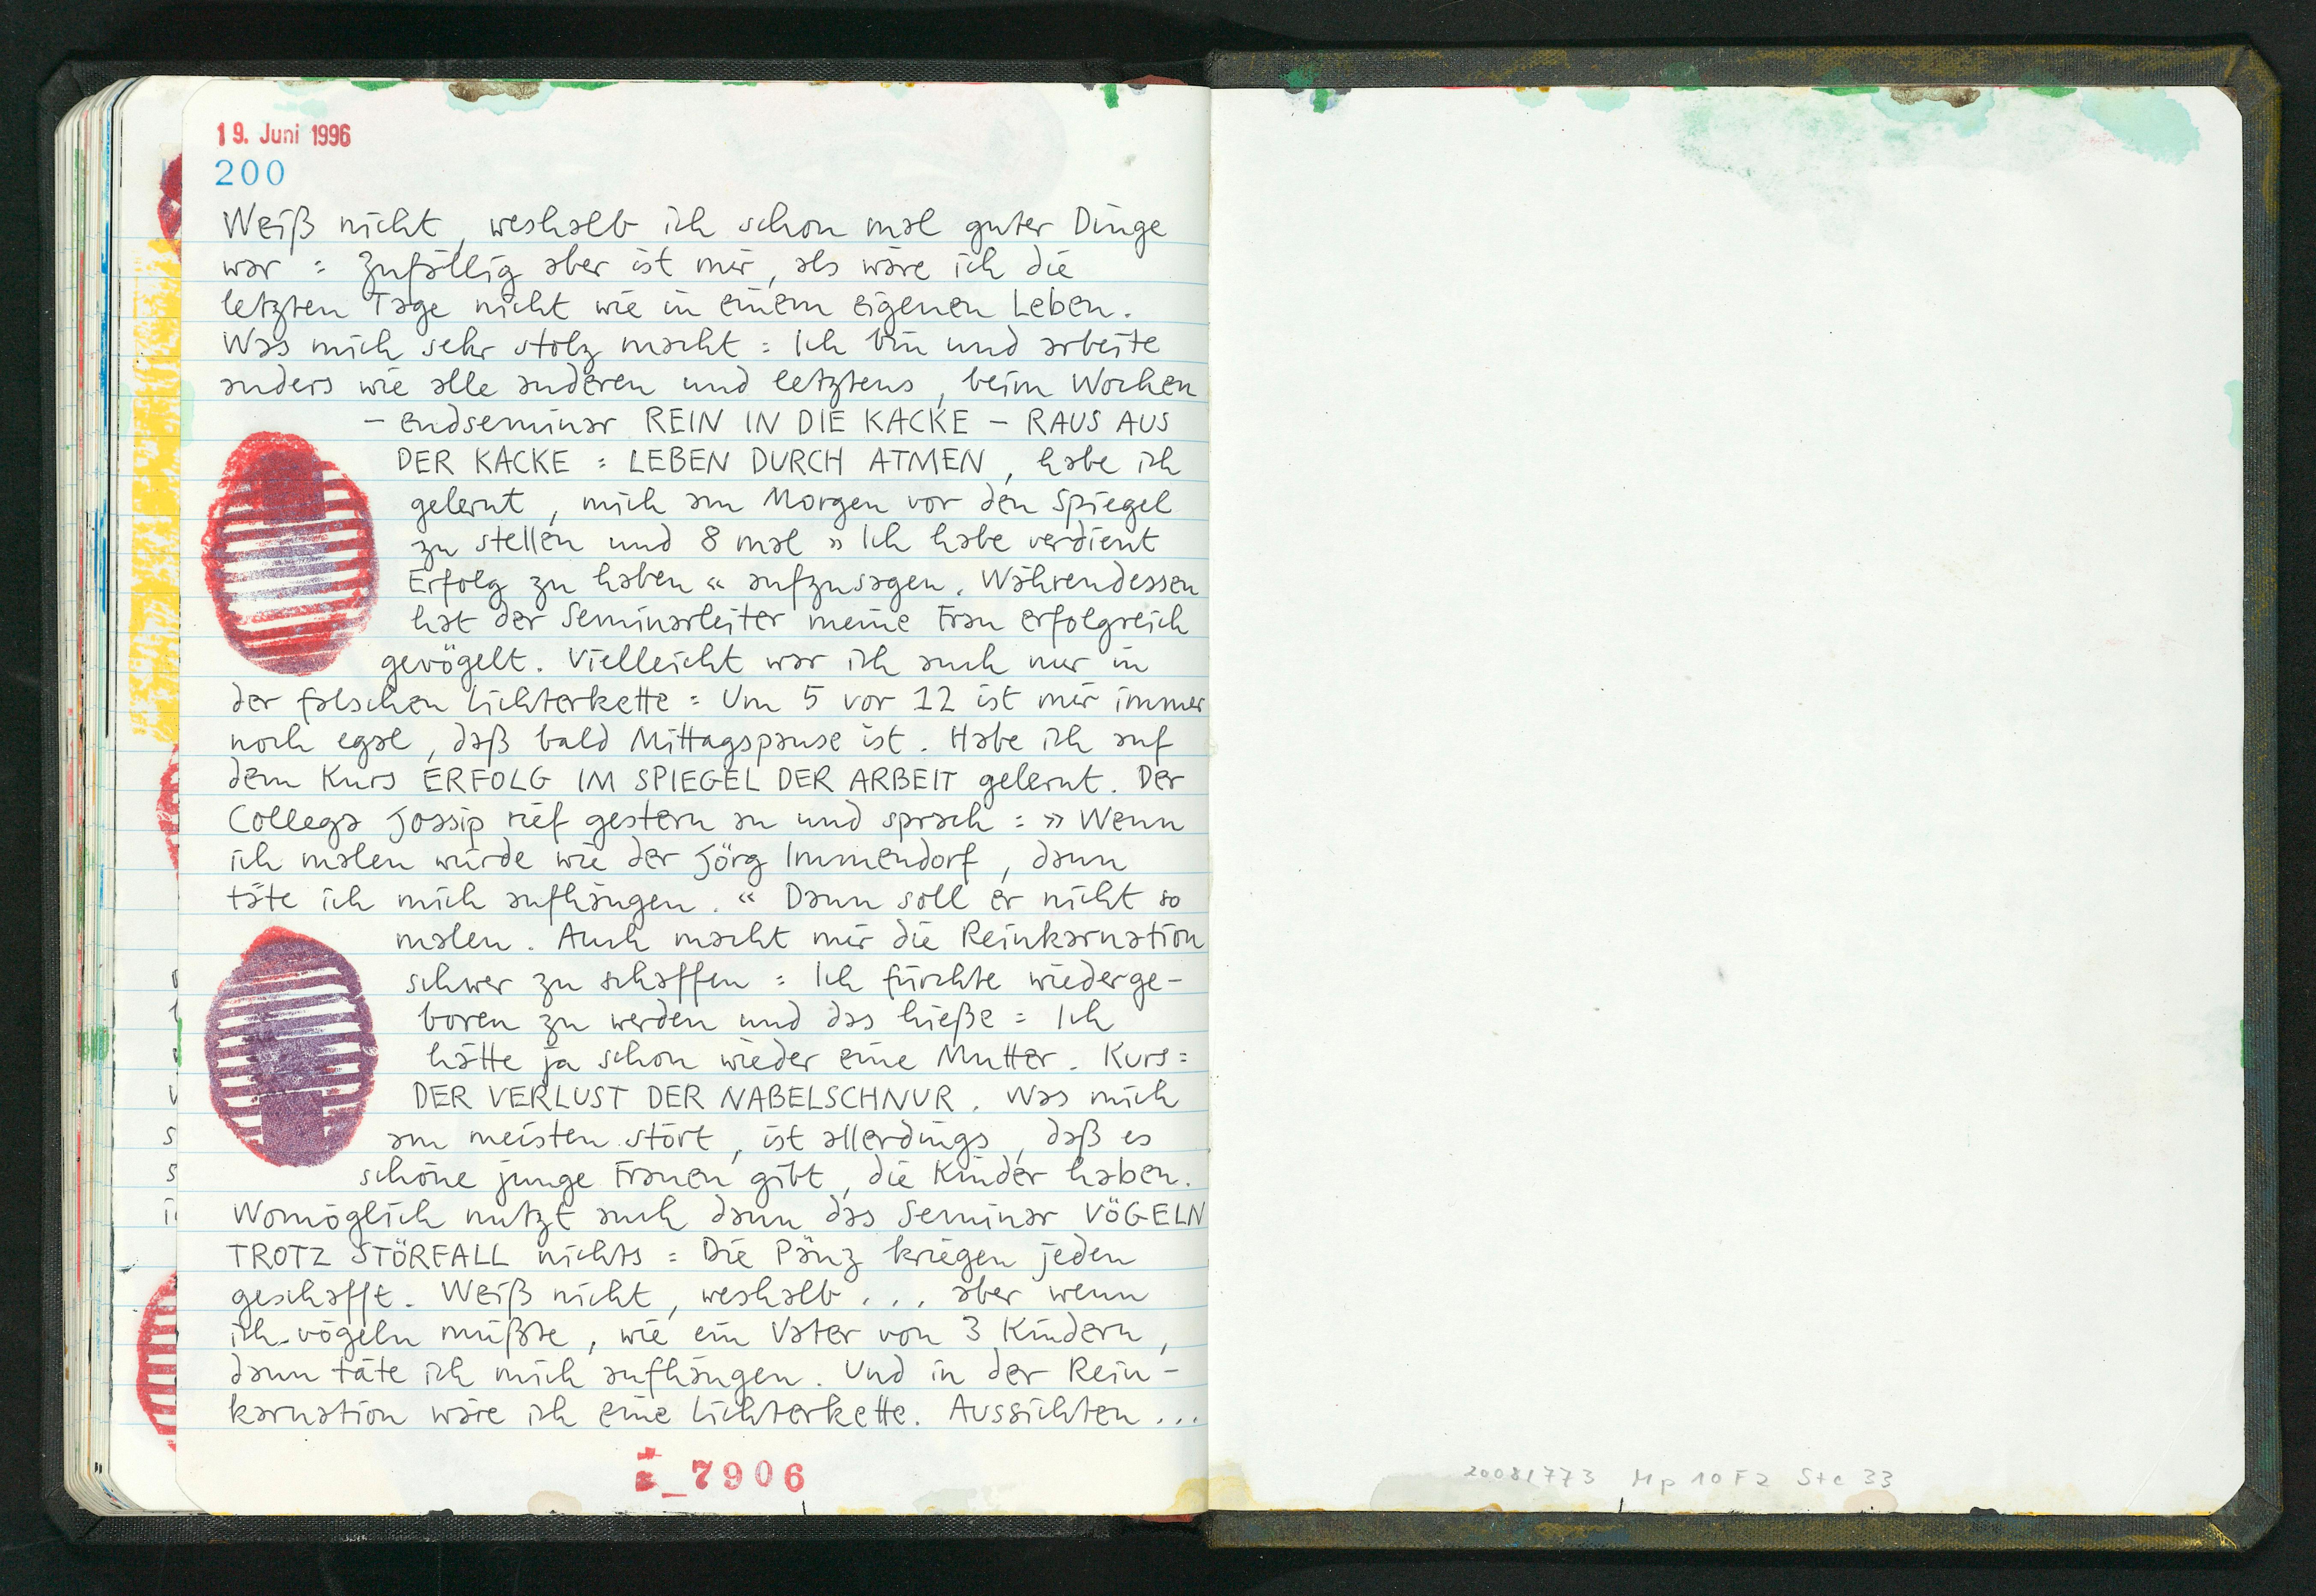 19. Juni 1996
200
Weiß nicht, weshalb ich schon mal guter Dinge
war : Zufällig aber ist mir, als wäre ich die
letzten Tage nicht wie in einem eigenen Leben.
Was mich sehr stolz macht : Ich bin und arbeite
anders wie alle anderen und letztens, beim Wochen
- endseminar REIN IN DIE KACKE - RAUS AUS
DER KACKE : LEBEN DURCH ATMEN, habe ich
gelernt, mich am Morgen vor den Spiegel
zu stellen und 8 mal » Ich habe verdient
Erfolg zu haben « aufzusagen. Währendessen
hat der Seminarleiter meine Frau erfolgreich
gevögelt. Vielleicht war ich auch nur in
der falschen Lichterkette : Um 5 vor 12 ist mir immer
noch egal, daß bald Mittagspause ist. Habe ich auf
dem Kurs ERFOLG IM SPIEGEL DER ARBEIT gelernt. Der
Collega Jossip rief gestern an und sprach : » Wenn
ich malen würde wie der Jörg Immendorf, dann
täte ich mich aufhängen. « Dann soll er nicht so
malen. Auch macht mir die Reinkarnation
schwer zu schaffen : Ich fürchte wiederge-
boren zu werden und das hieße : Ich
hätte ja schon wieder eine Mutter. Kurs :
DER VERLUST DER NABELSCHNUR. Was mich
am meisten stört, ist allerdings, daß es
schöne junge Frauen gibt, die Kinder haben.
Womöglich nutzt auch dann das Seminar VÖGELN
TROTZ STÖRFALL nichts : Die Pänz kriegen jeden
geschafft. Weiß nicht, weshalb ... aber wenn
ich vögeln müßte, wie ein Vater von 3 Kindern,
dann täte ich mich aufhängen. Und in der Rein-
karnation wäre ich eine Lichterkette. Aussichten ...
7906
20081773 Mp 10 F2 Stc 33